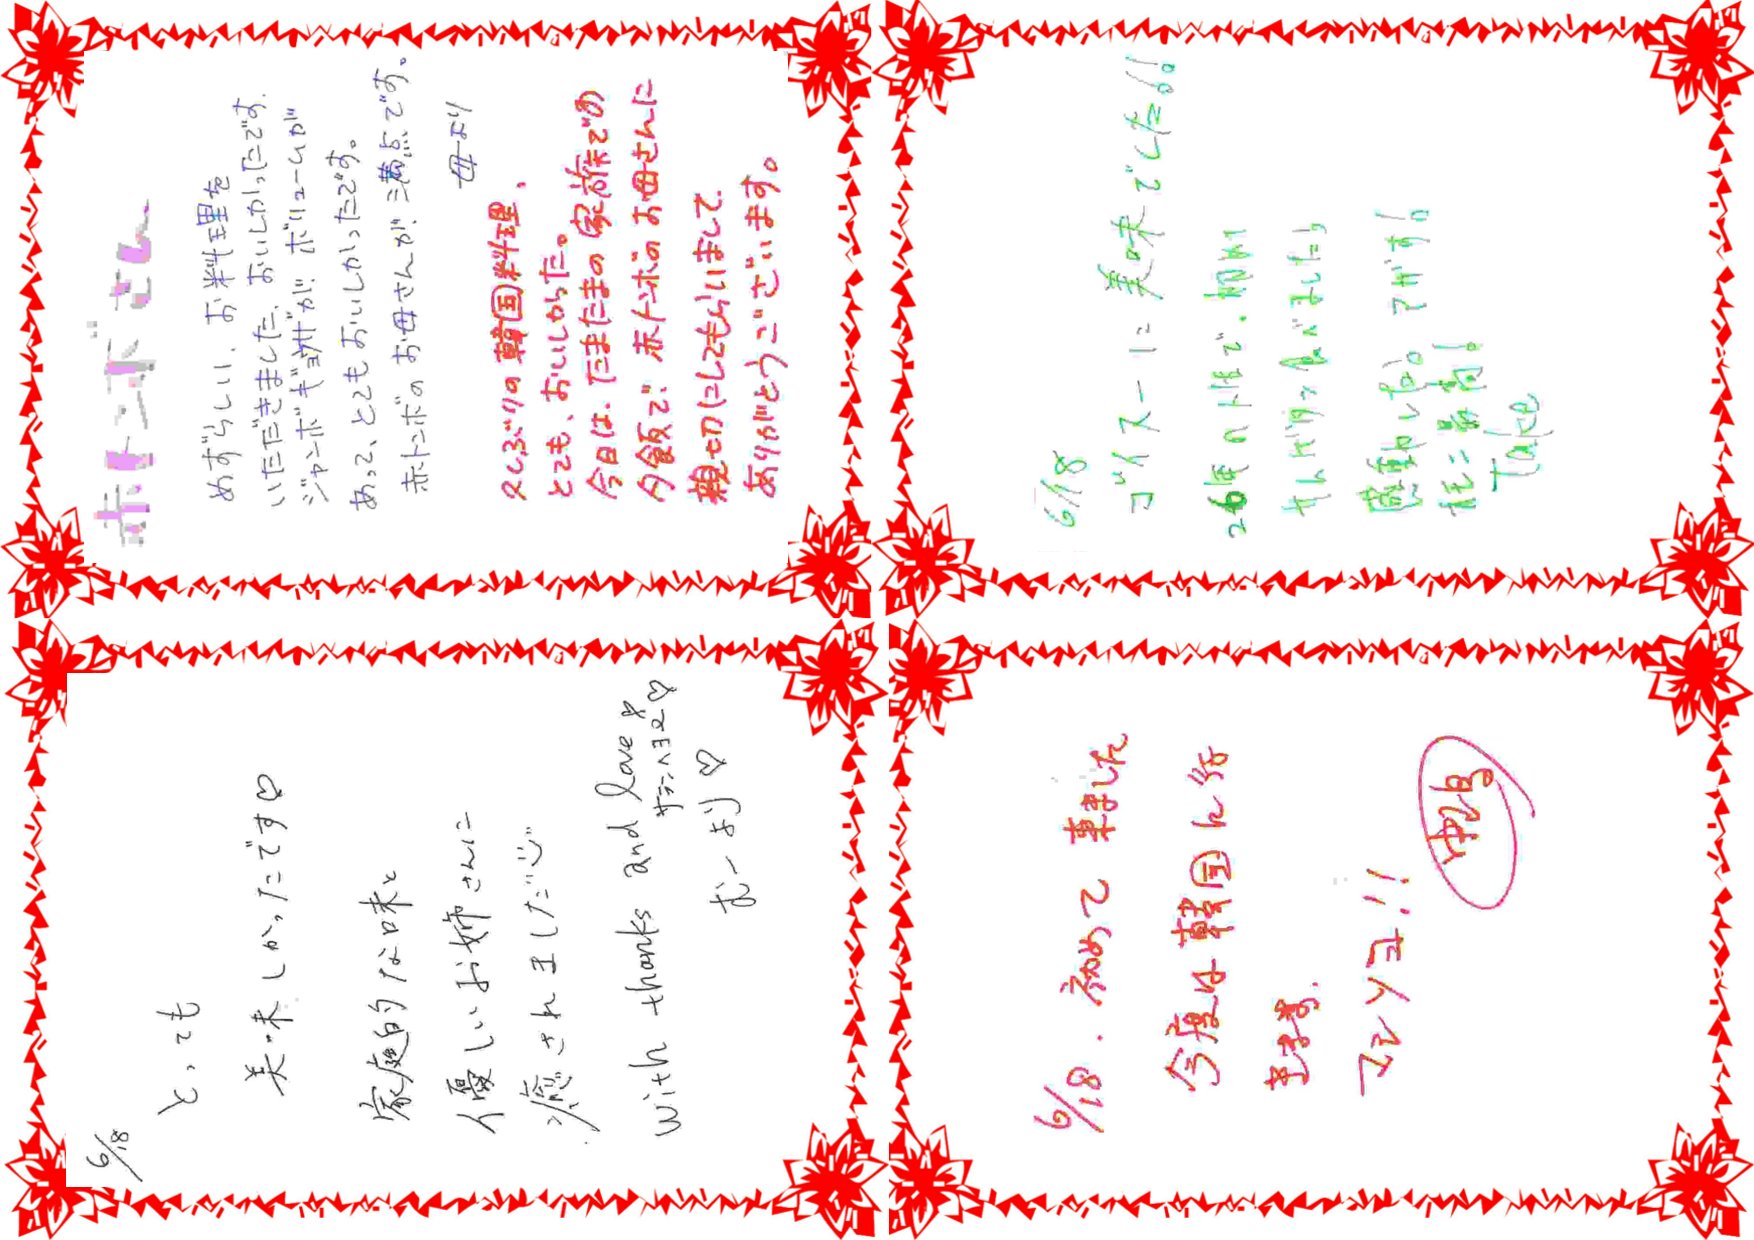 赤トンボさん
めずらしい、お料理を
いただきました、おいしかったです.
ジャンボギョウザが ボリュームが
あって、とてもおいしかったです。
赤トンボのお母さんが、満点です。
母より
久しぶりの韓国料理、
とても、おいしかった。
今日は、たまたまの家族での
夕飯で、赤トンボのお母さんに
親切にしてもらいまして、
ありがとうございます。
6/18
ゴイスーに美味でした!!。
26歳の
最高!。
Take
6/18
とっても
美味しかったです♡
家庭的な味と
優しいお姉さんに
癒されました
With thanks and love
サランヘヨ♡
むーより♡
6/18. 初めて来ました
今度は韓国に行
きます.